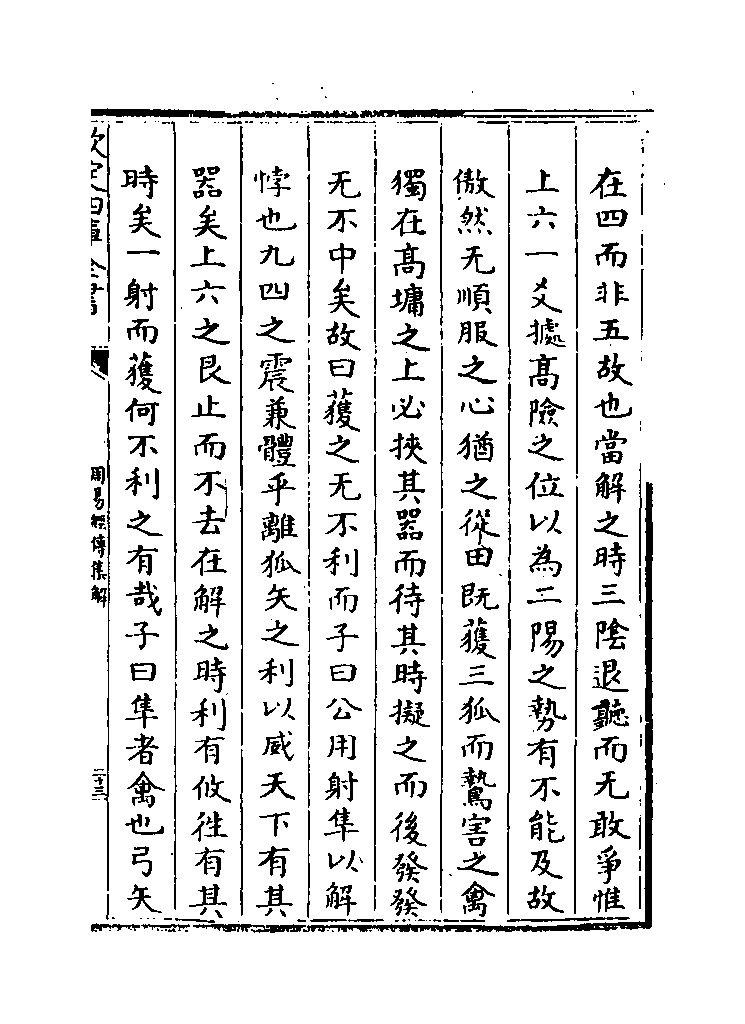 在四而非五故也當解之時三陰退聽而无敢爭惟
上六一爻據高險之位以為二陽之勢有不能及故
傲然无順服之心猶之從田既獲三狐而鷙害之禽
獨在高墉之上必挾其器而待其時擬之而後發發
无不中矣故曰獲之无不利而子曰公用射隼以解
悖也九四之震兼體乎離狐矢之利以威天下有其
器矣上六之艮止而不去在解之時利有攸徃有其
時矣一射而獲何不利之有哉子曰隼者禽也弓矢
欽定四庫全書
周易經傳集解
二十三